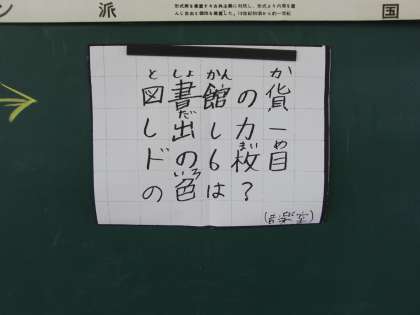 ン 派
国
と しょ かん か
図書館の貨
だ
し出しカー
まい め
ドの6枚目
いろ
の色は?
(音楽室)